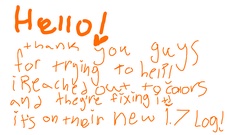 Hello!
thank you guys
for trying to help!
i Reached out to colors
and they're fixing it
it's on their new 1.7 Log!